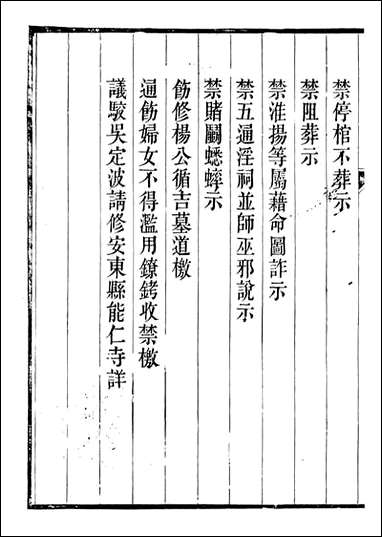 禁停棺不葬示
禁阻葬示
禁淮揚等屬藉命圖詐示
禁五通淫祠並師巫邪說示
禁賭鬭蟋蟀示
飭修楊公循吉墓道檄
通飭婦女不得濫用鐐銬收禁檄
議駮吳定波請修安東縣能仁寺詳